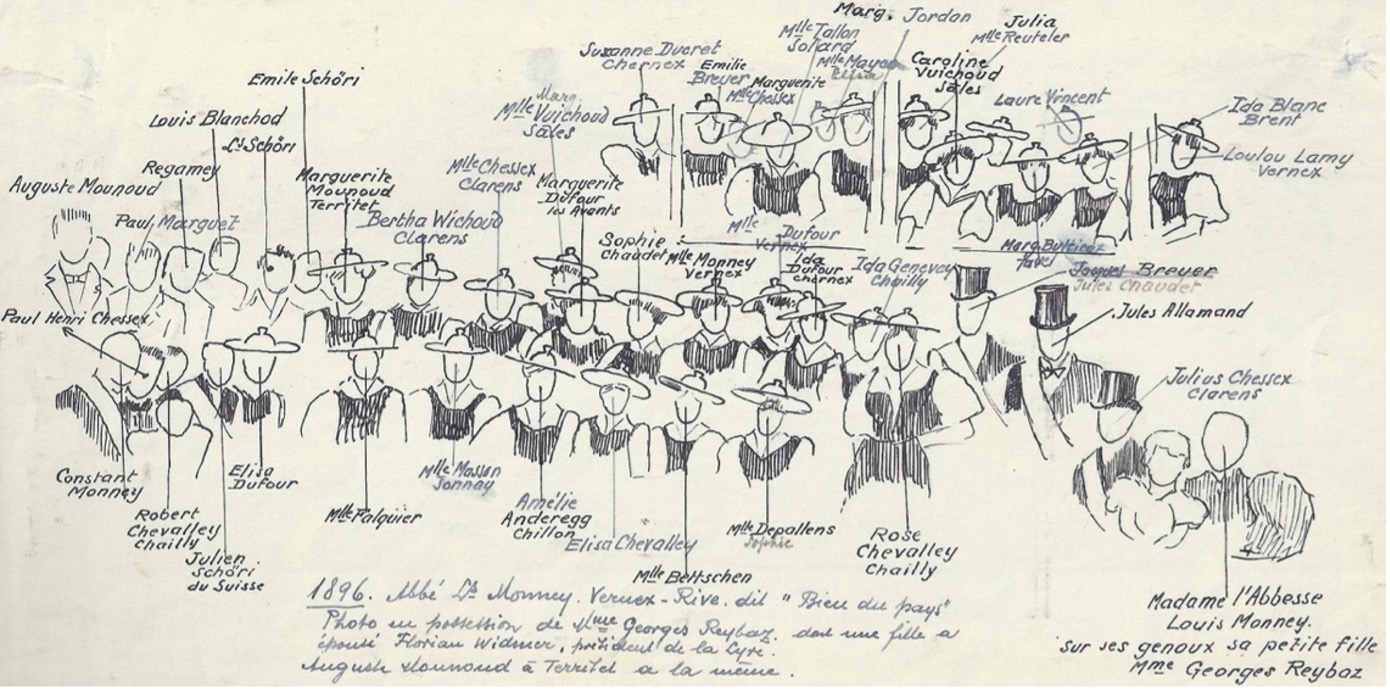 Marg. Jordan
Julia
Mlle Reuteler
Mlle Tallon
Sollard
Suzanne Ducret
Chernex
Emilie
Breuer
Mlle Mayor
Elisa
Caroline
Vuichoud
Sâles
Marguerite
Mlle Chessex
Emile Schöri
Marg.
Mlle Vuichoud
Sâles
Laure Vincent
Ida Blanc
Brent
Louis Blanchod
Ls Schöri
Loulou Lamy
Vernex
Regamey
Marguerite
Mounoud
Territet
Mlle Chessex
Clarens
Marguerite
Dufour
les Avants
Auguste Mounoud
Paul Marguet
Bertha Wichoud
Clarens
Mlle Dufour
Vernex
Sophie
Chaudet
Mlle Monney
Vernex
Ida
Dufour
Chernex
Ida Genevey
Chailly
Marg.
Tavel
Breuer
Jules Chaudet
Paul Henri Chessex
Jules Allamand
Julius Chessex
Clarens
Constant
Monney
Elisa
Dufour
Mlle Masson
Jonnay
Robert
Chevalley
Chailly
Mlle Falquier
Amélie
Anderegg
Chillon
Elisa Chevalley
Mlle Depallens
Sophie
Rose
Chevalley
Chailly
Julien
Schöri
du Suisse
Mlle Bettschen
1896. Abbé Ls Monney. Vernex-Rive. dit "Bien du pays"
Photo en possession de Mme Georges Reybaz. dont une fille a
épousé Florian Widmer, président de la Lyre.
Auguste Mounoud à Territet a la même.
Madame l'Abbesse
Louis Monney.
sur ses genoux sa petite fille
Mme Georges Reybaz